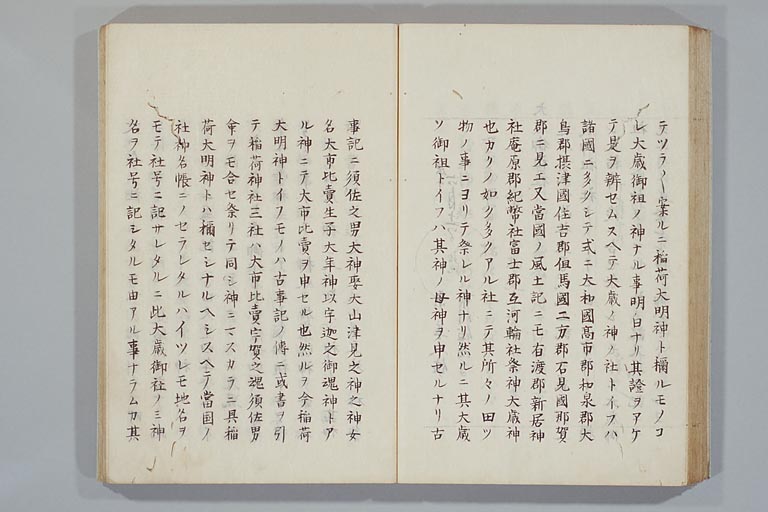 テツラ〱案ルニ稲荷大明神ト稱ルモノコ
レ大歳御祖ノ神ナル事明白ナリ其證ヲアケ
テ是ヲ辨セムスヘテ大歳ノ神ノ社トイフハ
諸國ニ多クシテ式ニ大和國高市郡和泉郡大
鳥郡摂津國住吉郡但馬國二方郡石見國那賀
郡ニ見エ又當國ノ風土記ニモ有渡郡新居神
社庵原郡紀幣社富士郡互河輪社祭神大歳神
也カクノ如ク多クアル社ニテ其所々ノ田ツ
物ノ事ニヨリテ祭レル神ナリ然ルニ其大歳
ツ御祖トイフハ其神ノ母神ヲ申セルナリ古
事記ニ須佐之男大神娶大山津見之神之神女
名大市比賣生子大年神以字迦之御魂神トア
ル神ニテ大市比賣ヲ申セル也然ルヲ今稲荷
大明神トイフモノハ古事記ノ傳ニ或書ヲ引
テ稲荷神社三社ハ大市比賣宇賀之魂須佐男
命ヲモ合セ祭リテ同シ神ニマスカラニ具稲
荷大明神トハ稱セシナルヘシスヘテ當国ノ
社神名帳ニノセラレタルハイツレモ地名ヲ
モテ社号ニ記サレタルニ此大歳御社ノミ神
名ヲ社号ニ記シタルモ由アル事ナラムカ其